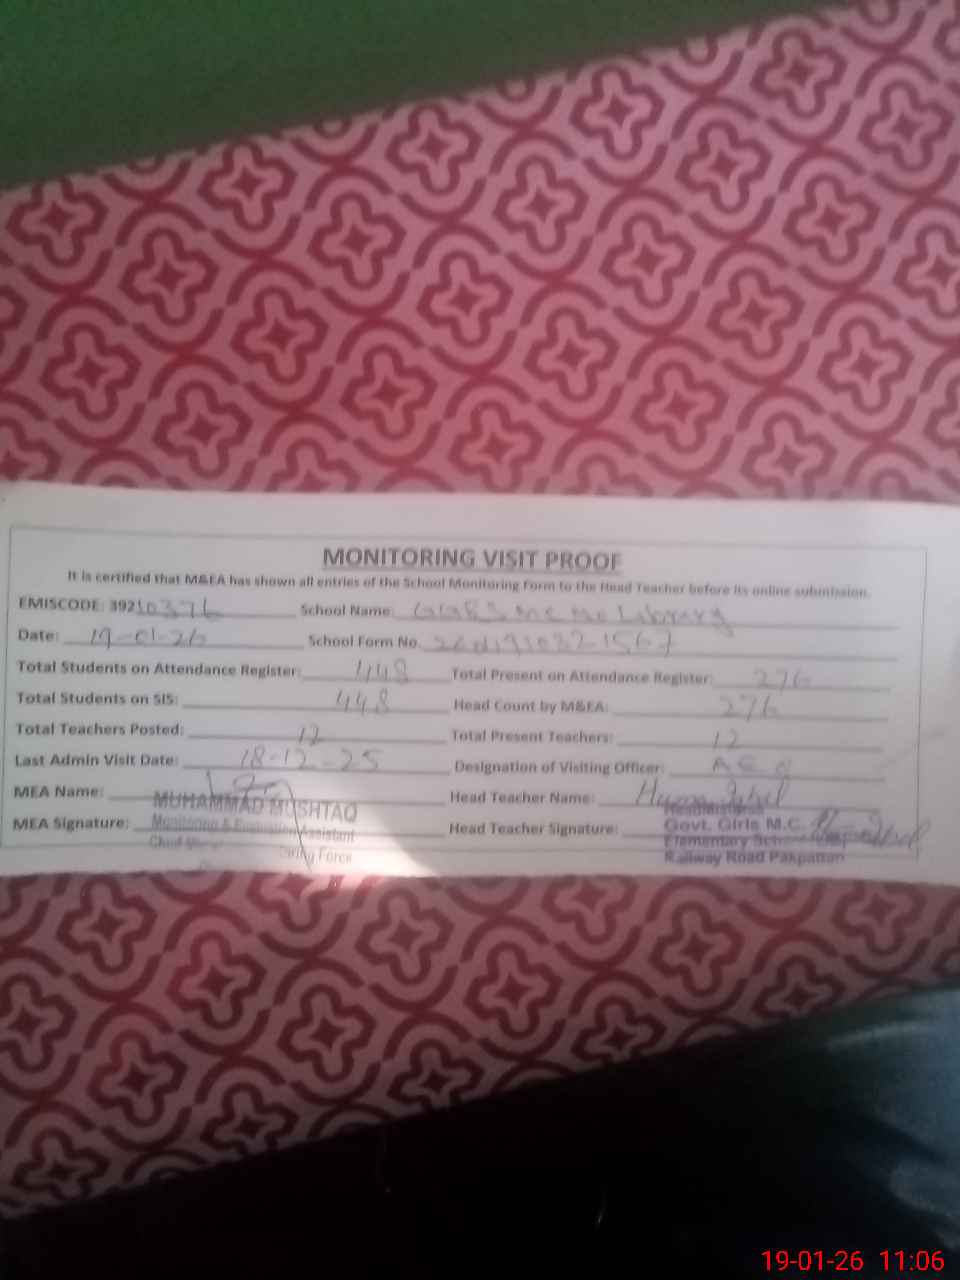 MONITORING VISIT PROOF
It is certified that M&EA has shown all entries of the School Monitoring Form to the Head Teacher before its online submission.
EMISCODE: 39210376 School Name: GGES MC
Date: 19-01-26 School Form No.
Total Students on Attendance Register: 448 Total Present on Attendance Register: 276
Total Students on SIS: 448 Head Count by M&EA: 276
Total Teachers Posted: 12 Total Present Teachers: 12
Last Admin Visit Date: 18-12-25 Designation of Visiting Officer: AEO
MEA Name: Head Teacher Name: Huma
MUHAMMAD MUSHTAQ Headmistress
MEA Signature: Monitoring & Evaluation Assistant Head Teacher Signature: Govt. Girls M.C.
Chief Force Elementary School
Railway Road Pakpattan
19-01-26 11:06